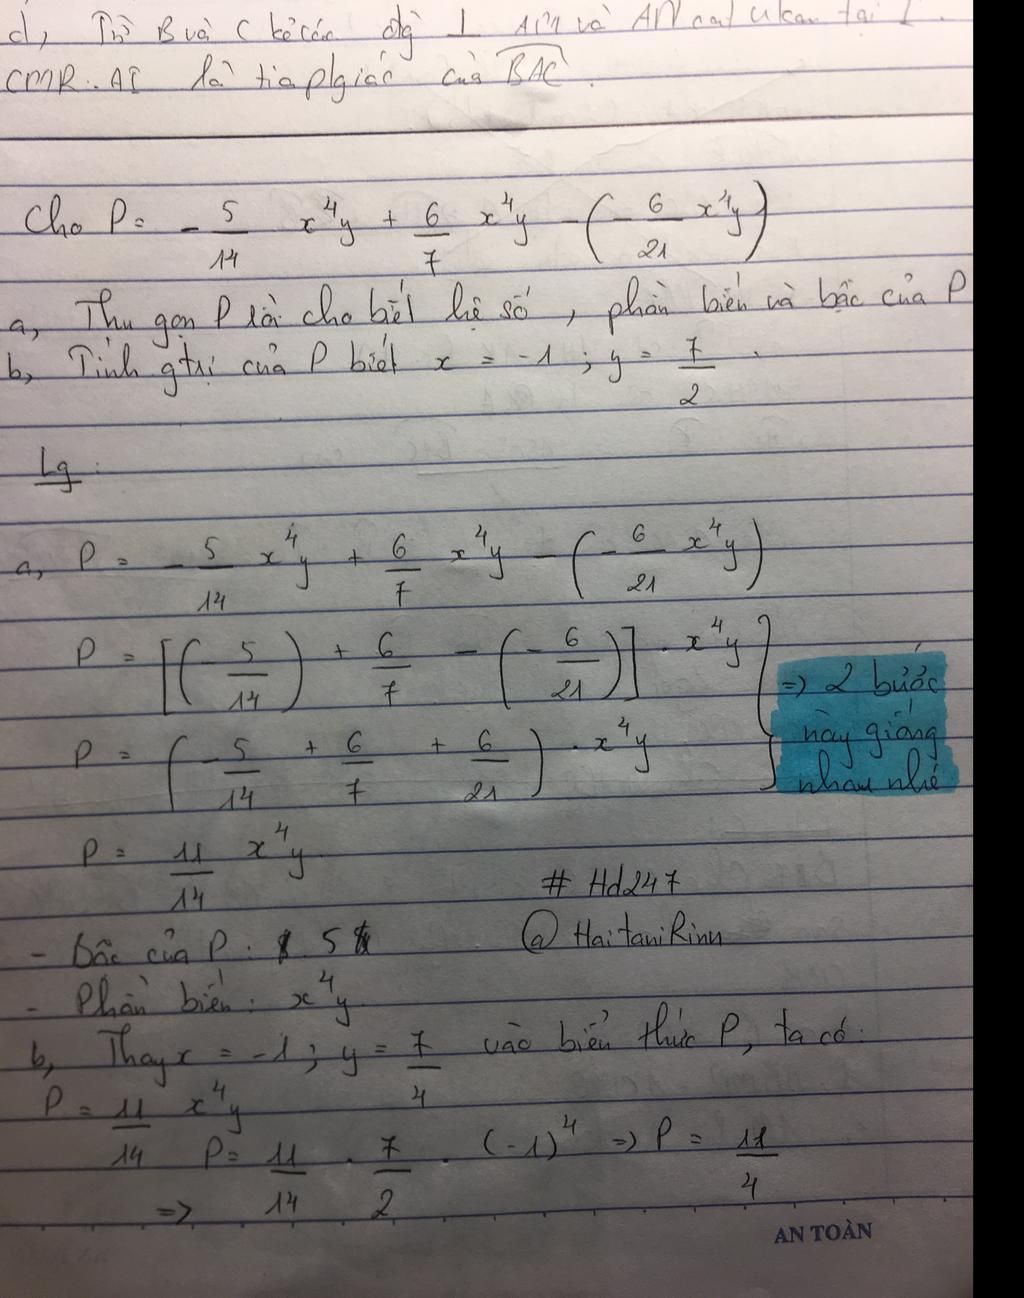 d, Từ B và C kẻ các đg ⊥ AM và AN cắt nhau tại I.
CMR. AI là tia pgiác của BAC.
Cho P = - 5/14 x⁴y + 6/7 x⁴y - (- 6/21 x⁴y)
a, Thu gọn P rồi cho biết hệ số, phần biến và bậc của P
b, Tính gtrị của P biết x = -1; y = 7/2.
Lg:
a, P = - 5/14 x⁴y + 6/7 x⁴y - (- 6/21 x⁴y)
P = [(- 5/14) + 6/7 - (- 6/21)] . x⁴y
P = (- 5/14 + 6/7 + 6/21) . x⁴y
=> 2 bước
này giống
nhau nhé
P = 11/14 x⁴y
# Hd247
- Bậc của P: 5
@ HaitaniRinn
- Phần biến: x⁴y
b, Thay x = -1; y = 7/4 vào biểu thức P, ta có:
P = 11/14 x⁴y
=> P = 11/14 . 7/2 . (-1)⁴ => P = 11/4
AN TOÀN